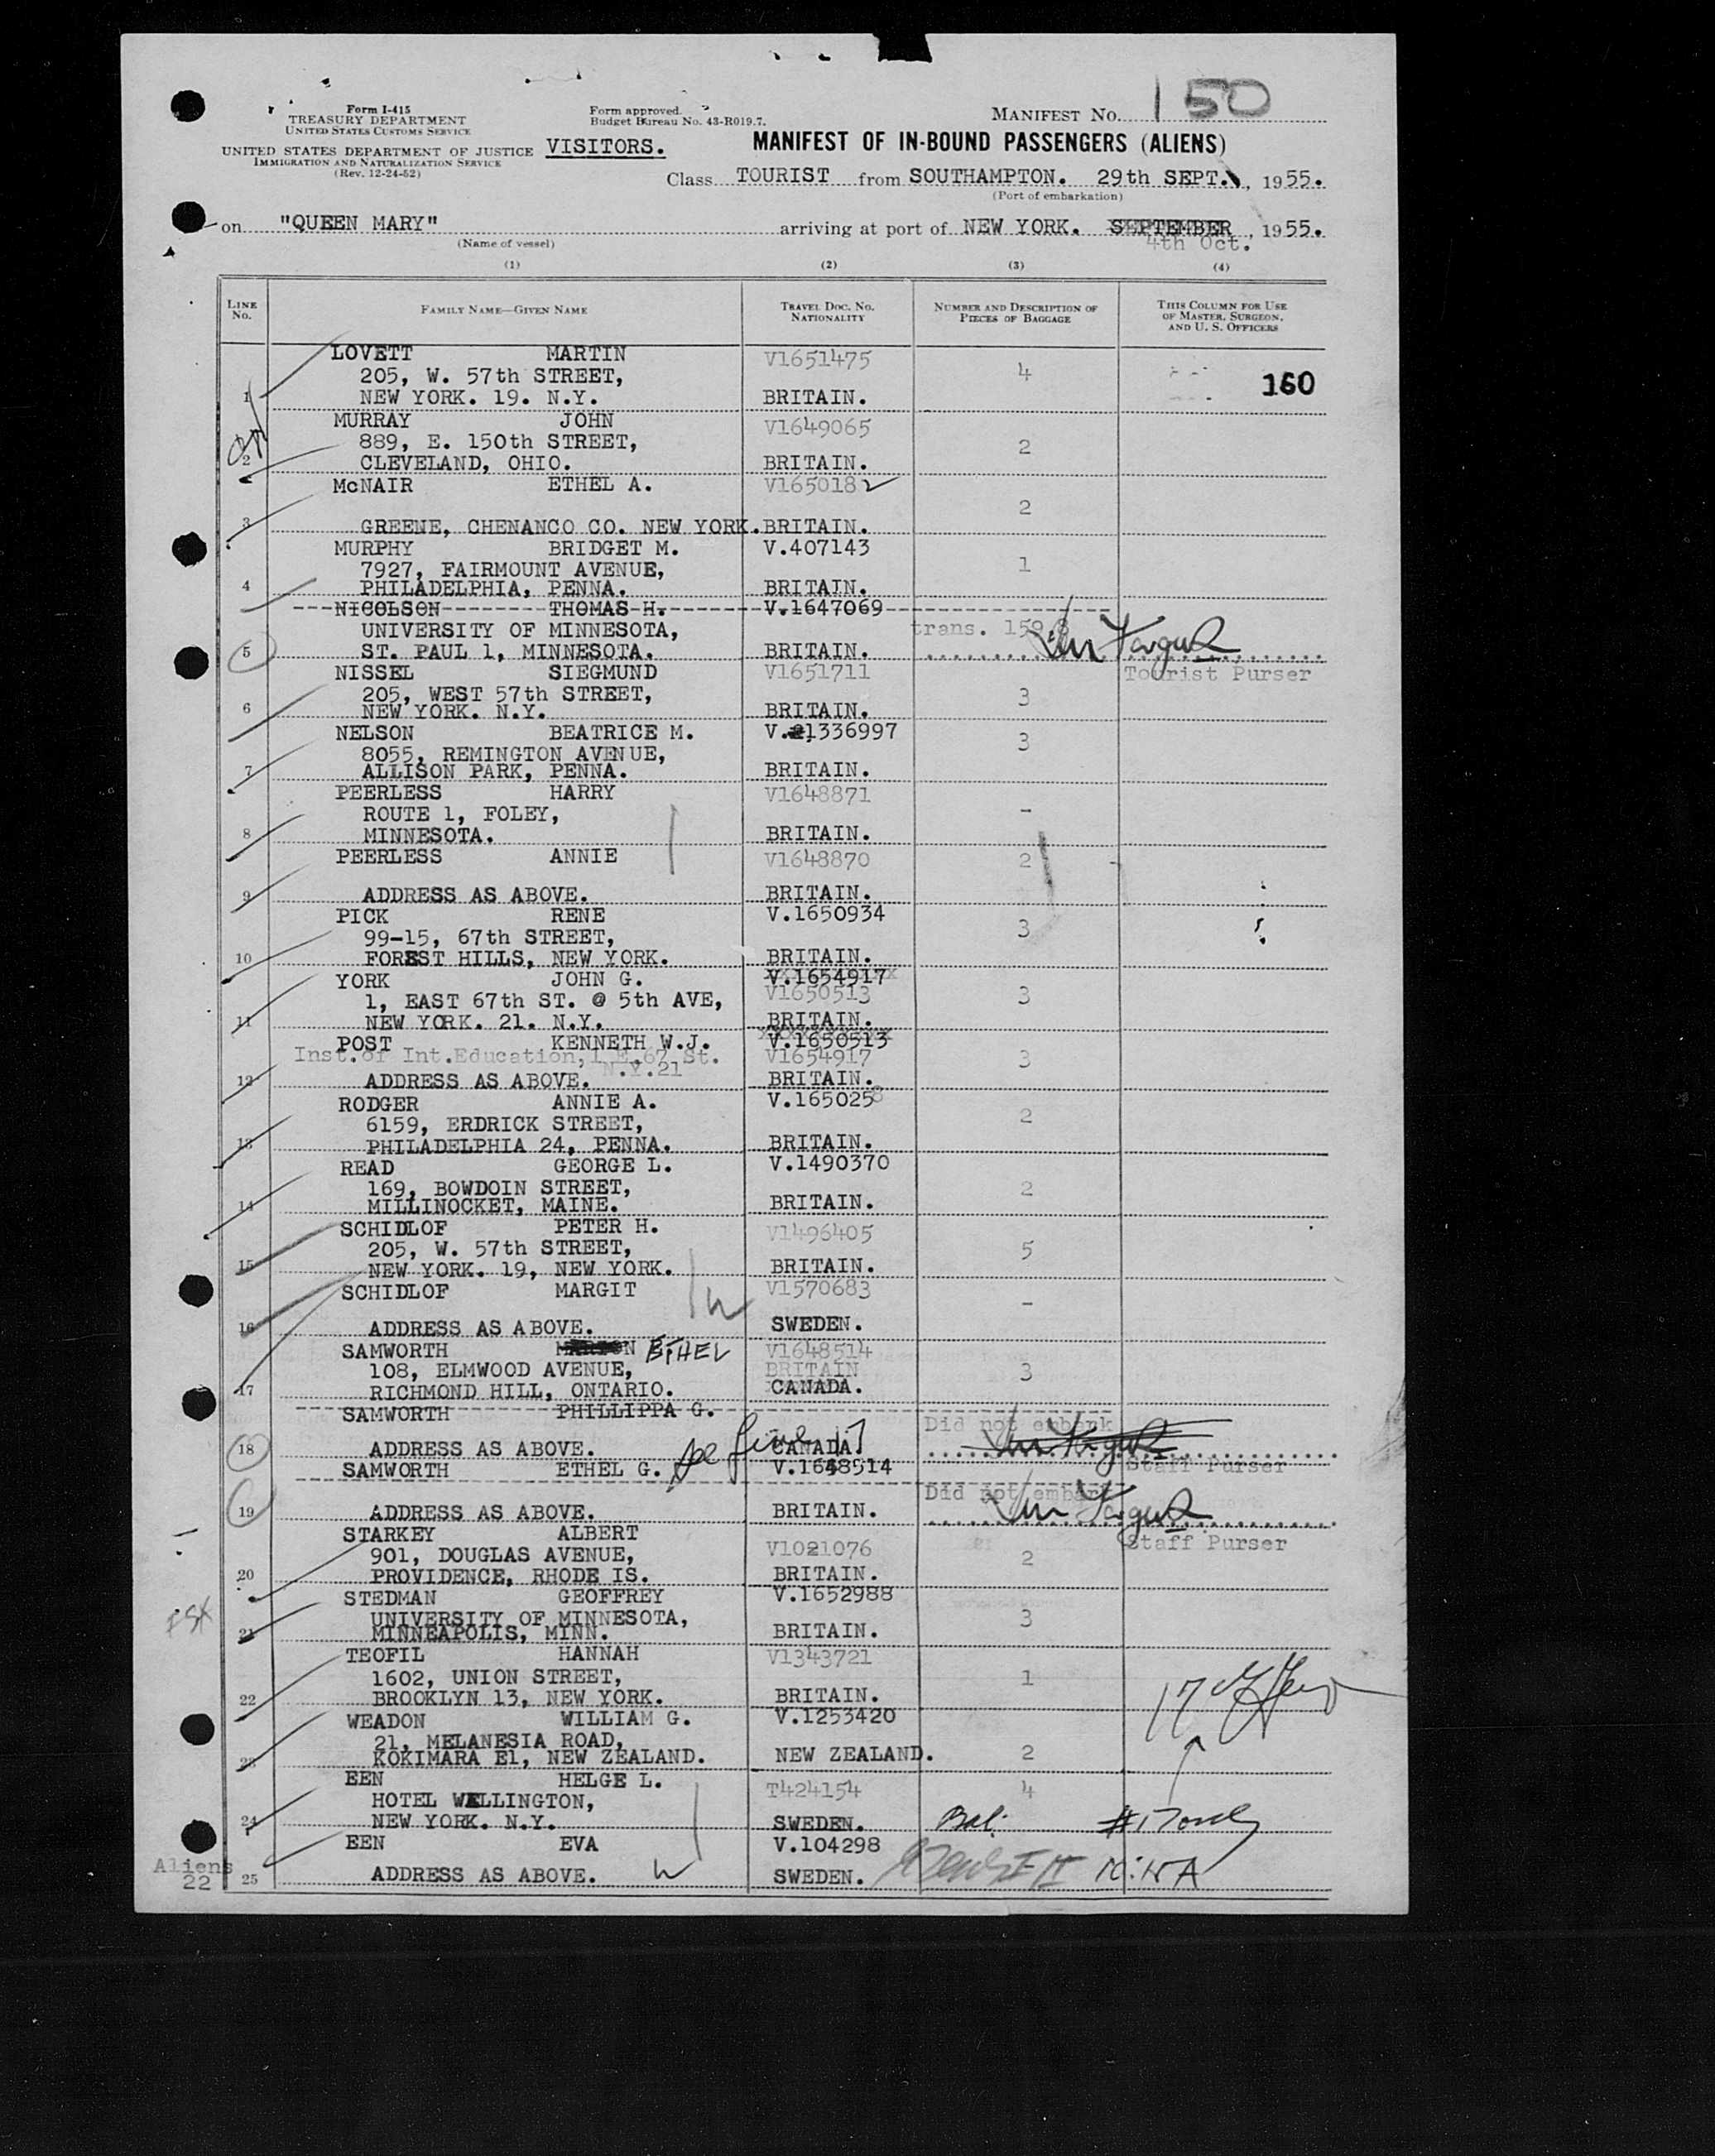 Form I-415
TREASURY DEPARTMENT
UNITED STATES CUSTOMS SERVICE
UNITED STATES DEPARTMENT OF JUSTICE
IMMIGRATION AND NATURALIZATION SERVICE
(Rev. 12-24-52)
Form approved.
Budget Bureau No. 43-R019.7.
VISITORS.
MANIFEST No. 150
MANIFEST OF IN-BOUND PASSENGERS (ALIENS)
Class TOURIST from SOUTHAMPTON. 29th SEPT., 1955.
(Port of embarkation)
on "QUEEN MARY" arriving at port of NEW YORK. SEPTEMBER, 1955.
4th Oct.
(Name of vessel)
(1) (2) (3) (4)
LINE No. FAMILY NAME—GIVEN NAME TRAVEL DOC. No. NATIONALITY NUMBER AND DESCRIPTION OF PIECES OF BAGGAGE THIS COLUMN FOR USE OF MASTER, SURGEON, AND U. S. OFFICERS
LOVETT MARTIN V1651475
205, W. 57th STREET, 4 160
1 NEW YORK. 19. N.Y. BRITAIN.
MURRAY JOHN V1649065
889, E. 150th STREET, 2
2 CLEVELAND, OHIO. BRITAIN.
McNAIR ETHEL A. V1650182
2
3 GREENE, CHENANCO CO. NEW YORK. BRITAIN.
MURPHY BRIDGET M. V.407143
7927, FAIRMOUNT AVENUE, 1
4 PHILADELPHIA, PENNA. BRITAIN.
NICOLSON THOMAS H. V.1647069
UNIVERSITY OF MINNESOTA, trans. 159
5 ST. PAUL 1, MINNESOTA. BRITAIN.
NISSEL SIEGMUND V1651711 Tourist Purser
205, WEST 57th STREET, 3
6 NEW YORK. N.Y. BRITAIN.
NELSON BEATRICE M. V.1336997
8055, REMINGTON AVENUE, 3
7 ALLISON PARK, PENNA. BRITAIN.
PEERLESS HARRY V1648871
ROUTE 1, FOLEY, -
8 MINNESOTA. BRITAIN.
PEERLESS ANNIE V1648870 2
9 ADDRESS AS ABOVE. BRITAIN.
PICK RENE V.1650934
99-15, 67th STREET, 3
10 FOREST HILLS, NEW YORK. BRITAIN.
YORK JOHN G. V.1654917
1, EAST 67th ST. @ 5th AVE, V1650513 3
11 NEW YORK. 21. N.Y. BRITAIN.
POST KENNETH W.J. V.1650513
Inst. of Int. Education, 1 E. 67 St. V1654917 3
N.Y.21
12 ADDRESS AS ABOVE. BRITAIN.
RODGER ANNIE A. V.1650258
6159, ERDRICK STREET, 2
13 PHILADELPHIA 24, PENNA. BRITAIN.
READ GEORGE L. V.1490370
169, BOWDOIN STREET, 2
14 MILLINOCKET, MAINE. BRITAIN.
SCHIDLOF PETER H. V1496405
205, W. 57th STREET, 5
15 NEW YORK. 19, NEW YORK. BRITAIN.
SCHIDLOF MARGIT V1570683
-
16 ADDRESS AS ABOVE. SWEDEN.
SAMWORTH ETHEL V1648514
108, ELMWOOD AVENUE, BRITAIN 3
17 RICHMOND HILL, ONTARIO. CANADA.
SAMWORTH PHILLIPPA G. Did not embark
18 ADDRESS AS ABOVE. see line 17 CANADA.
Staff Purser
SAMWORTH ETHEL G. V.1648514
Did not embark
19 ADDRESS AS ABOVE. BRITAIN.
Staff Purser
STARKEY ALBERT
901, DOUGLAS AVENUE, V1021076 2
20 PROVIDENCE, RHODE IS. BRITAIN.
STEDMAN GEOFFREY V.1652988
UNIVERSITY OF MINNESOTA, 3
21 MINNEAPOLIS, MINN. BRITAIN.
TEOFIL HANNAH V1343721
1602, UNION STREET, 1
22 BROOKLYN 13, NEW YORK. BRITAIN.
WEADON WILLIAM G. V.1253420
21, MELANESIA ROAD,
23 KOKIMARA E1, NEW ZEALAND. NEW ZEALAND. 2
EEN HELGE L. T424154 4
HOTEL WELLINGTON,
24 NEW YORK. N.Y. SWEDEN. Bal: #17 only
EEN EVA V.104298
25 ADDRESS AS ABOVE. SWEDEN.
Aliens
22